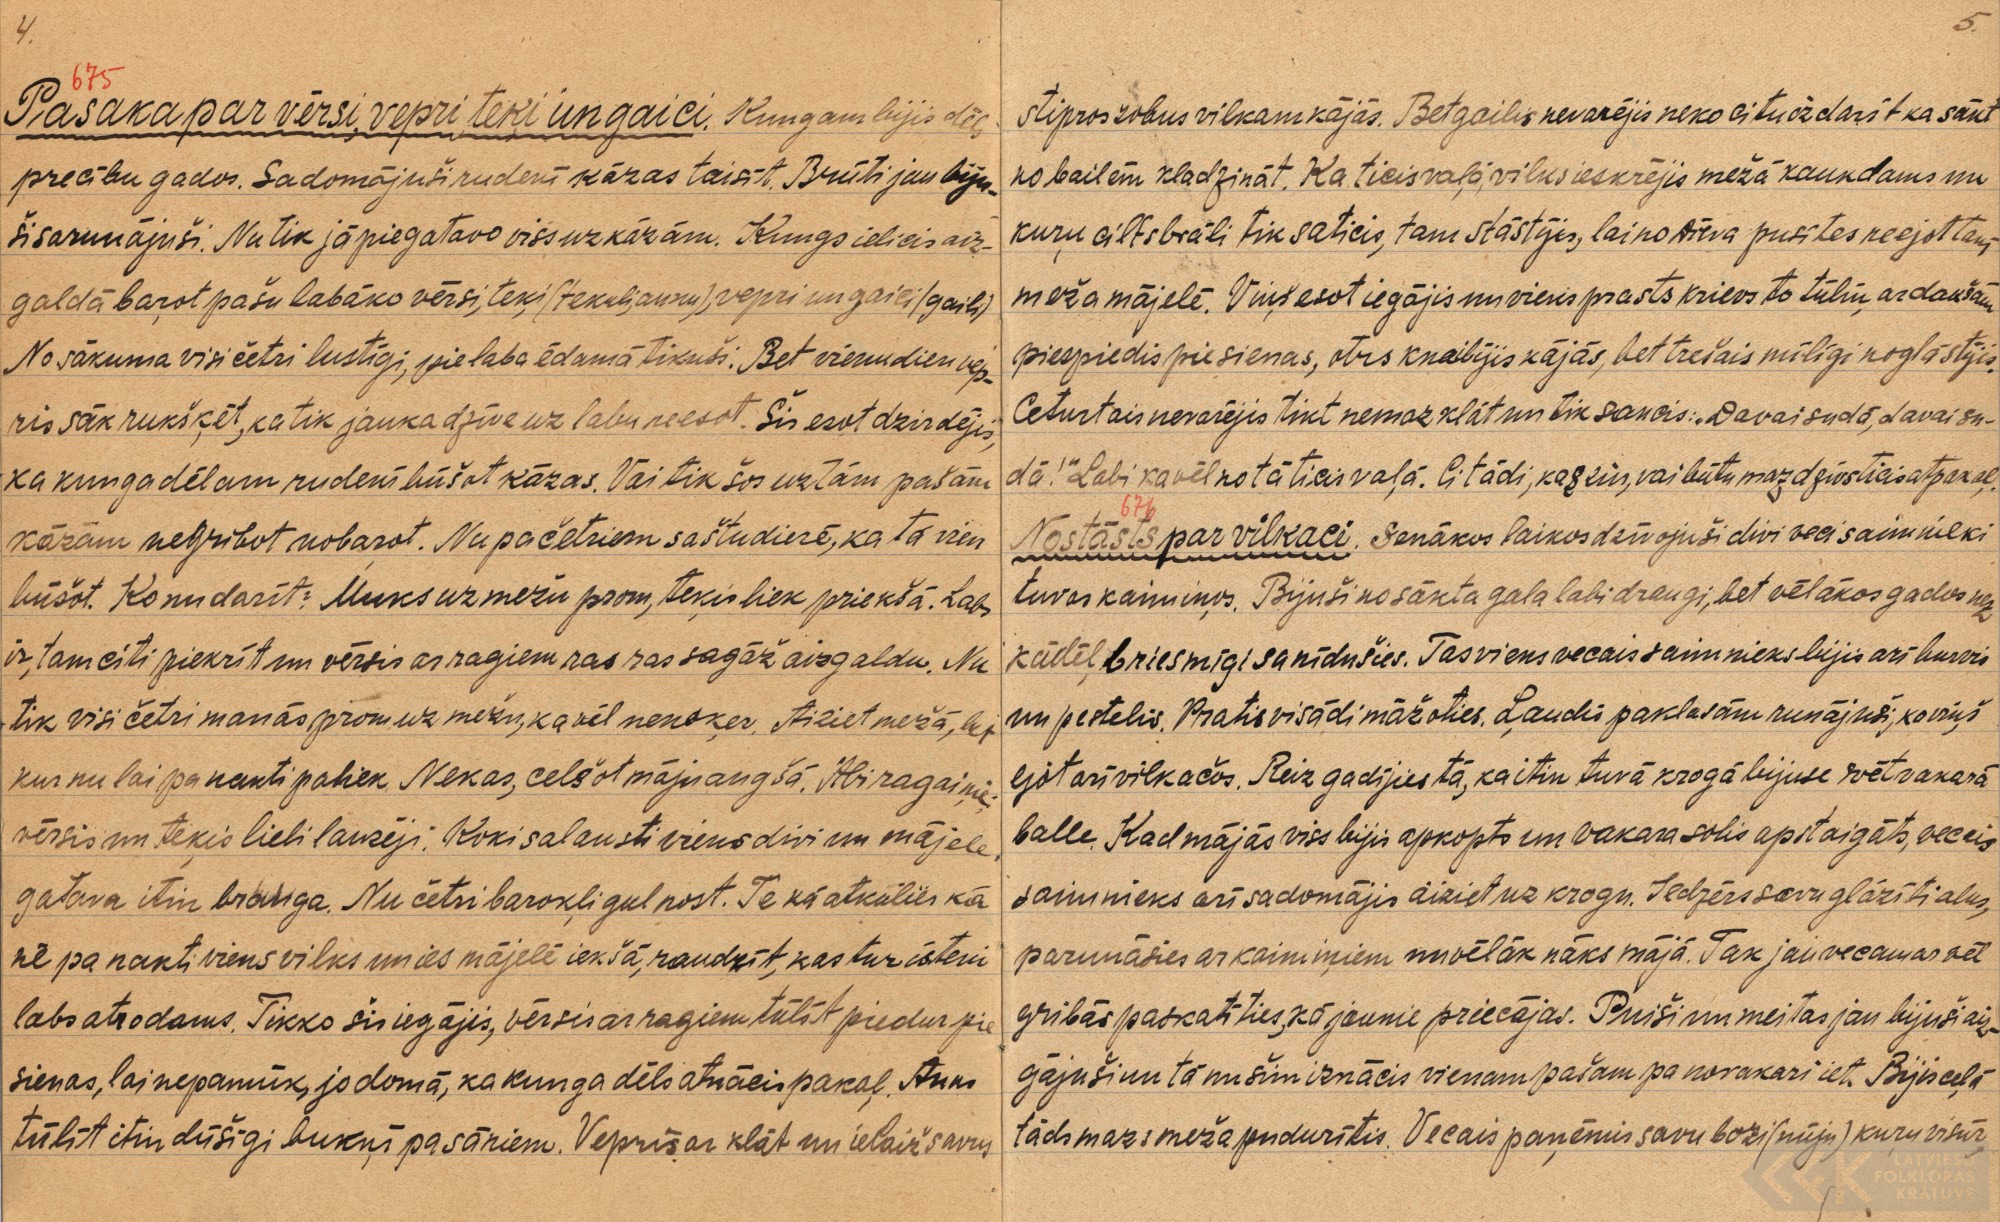 4.
675
Pasaka par vērsi, vepri, teķi un gaici. Kungam bijis dēls
precību gados. Sadomājuši rudenī kāzas taisīt. Brūti jau biju-
ši sarunājuši. Nu tik jāpiegatavo viss uz kāzām. Kungs ielicis aiz-
galdā baŗot pašu labāko vērsi, teķi (tekuli, aunu), vepri un gaici (gaili)
No sākuma visi četri lustīgi, pie laba ēdamā tikuši. Bet vienu dien vep-
ris sāk rukšķēt, ka tik jauka dzīve uz labu neesot. Šis esot dzirdējis,
ka kunga dēlam rudenī būšot kāzas. Vai tik šos uz tām pašām
kāzām negribot nobaŗot. Nu pa četriem saštudierē, ka tā vien
būšot. Ko nu darīt? Muks uz mežu prom, teķis liek priekšā. Labs
ir, tam citi piekrīt un vērsis ar ragiem ras ras sagāž aizgaldu. Nu
tik visi četri manās prom uz mežu, ka vēl nenoķer. Aiziet mežā, bet
kur nu lai pa nakti paliek. Nekas, celšot māju augšā. Abi ragaiņie:
vērsis un teķis lieli lauzēji. Koki salausti viens divi un mājele
gatava itin branga. Nu četri barokļi guļ nost. Te kā atkūlies kā
nē pa nakti viens vilks un ies mājelē iekšā, raudzīt, kas tur īsteni
labs atrodams. Tikko šis iegājis, vērsis ar ragiem tūlīt piedur pie
sienas, lai nepamūk, jo domā, ka kunga dēls atnācis pakaļ. Auns
tūlīt itin dūšīgi bukņī pa sāniem. Vepris ar klāt un ielaiž savus
5.
stipros zobus vilkam kājās. Bet gailis nevarējis neko citu izdarīt ka sākt
no bailēm kladzināt. Ka ticis vaļā, vilks ieskrējis mežā kaukdams un
kuŗu cilts brāli tik saticis, tam stāstījis, lai no Dieva pusītes neejot tanī
meža mājelē. Viņš esot iegājis un viens prasts krievs to tūliņ ar dakšām
piespiedis pie sienas, otrs knaibījis kājās, bet trešais mīlīgi noglāstījis.
Ceturtais nevarējis tikt nemaz klāt un tik saucis: „Davai sudā, davai su-
dā!" Labi ka vēl no tā ticis vaļā. Citādi, kas zin, vai būtu maz dzīvs ticis atpakaļ.
676
Nostāsts par vilkaci. Senākos laikos dzīvojuši divi veci saimnieki
tuvos kaimiņos. Bijuši no sākta gala labi draugi, bet vēlākos gados nez
kādēļ briesmīgi sanīdušies. Tas viens vecais saimnieks bijis arī burvis
un pestelis. Pratis visādi māžoties. Ļaudis paklusām runājuši, ka viņš
ejot arī vilkačos. Reiz gadījies tā, ka itin tuvā krogā bijuse svētvakarā
balle. Kad mājās viss bijis apkopts un vakara solis apstaigāts, vecais
saimnieks arī sadomājis aiziet uz krogu. Iedzērs savu glāzīti alus,
parunāsies ar kaimiņiem un vēlāk nāks mājā. Tak jau vecam ar vēl
gribās paskatīties, kā jaunie priecājas. Puiši un meitas jau bijuši aiz-
gājuši un tā nu šim iznācis vienam pašam pa novakari iet. Bijis ceļā
tāds mazs meža puduritis. Vecais paņēmis savu bozi (nūju) kuŗu visur
LATVIEŠU
FOLKLORAS
KRĀTUVE